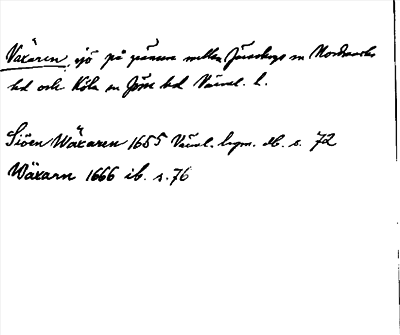 Växaren, sjö på gränsen mellan Järnskogs sn Nordmarks
hd och Köla sn Jösse hd Värml. l.
Siöen Wäxaren 1655 Värml. lego. db. s. 72
Wäxarn 1666 ib. s. 76